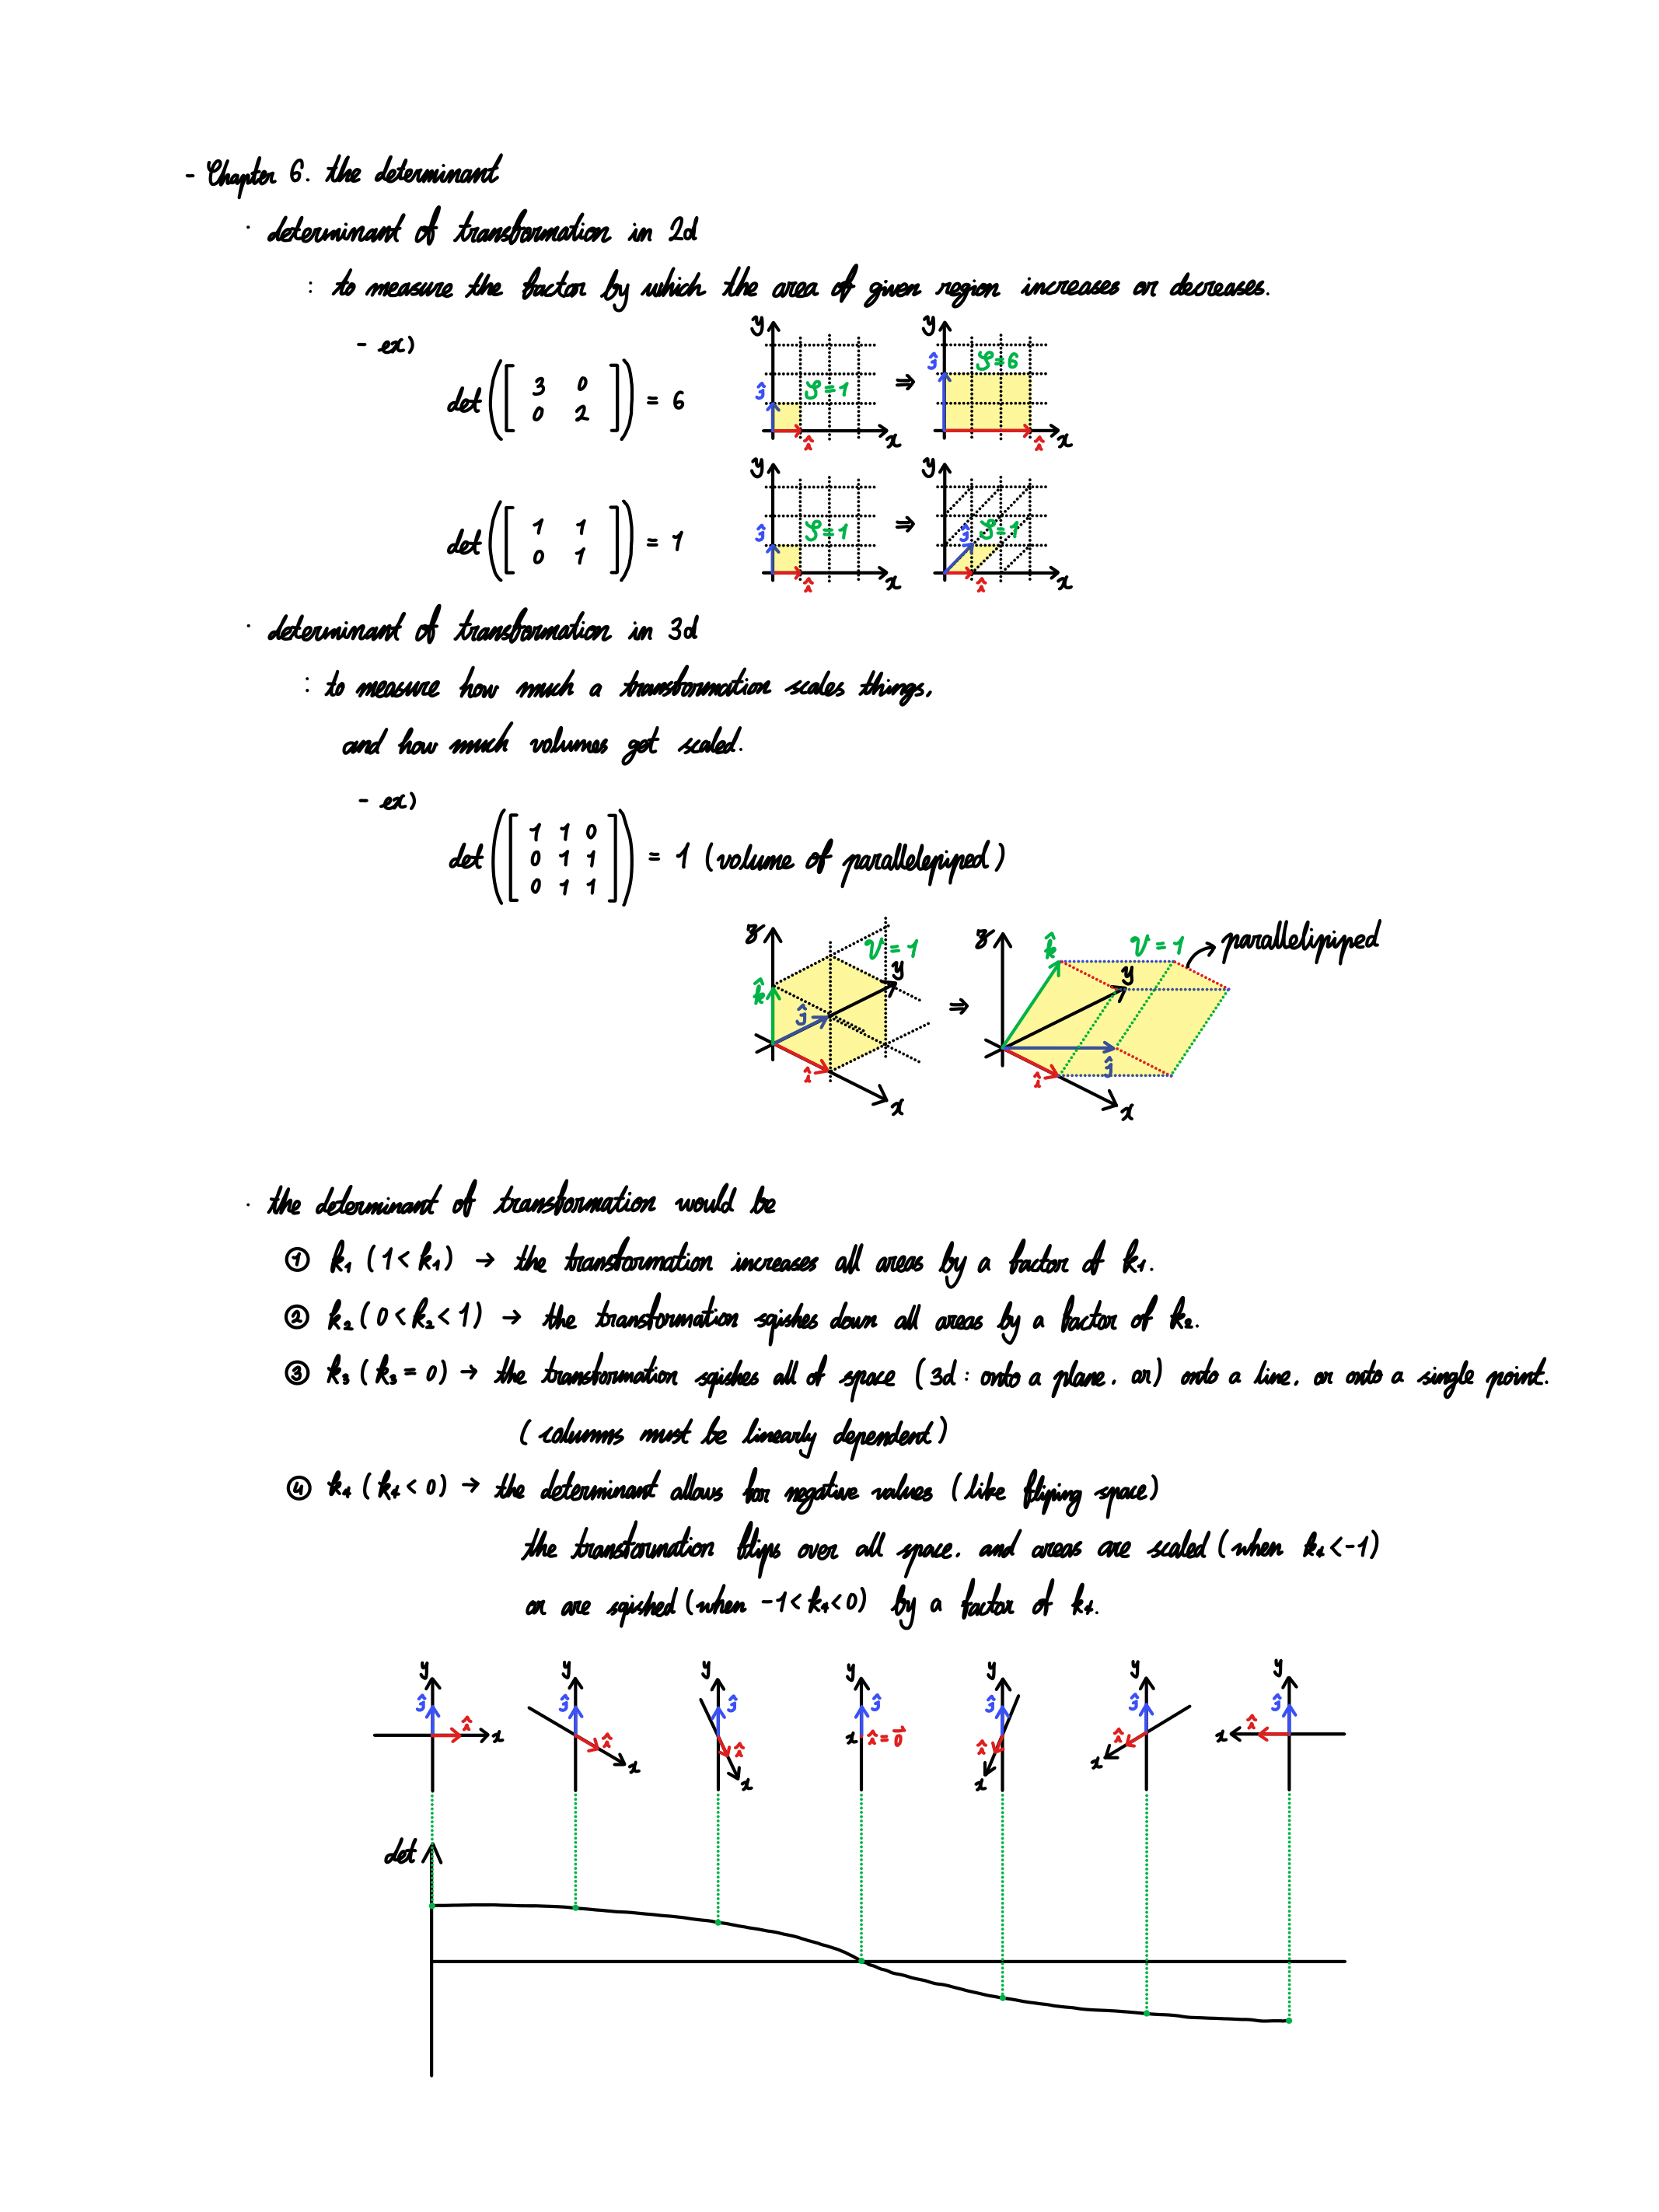 - Chapter 6. the determinant
· determinant of transformation in 2d
: to measure the factor by which the area of given region increases or decreases.
- ex)
det([ 3 0
0 2 ]) = 6
y ĵ S=1 î x ⇒ y ĵ S=6 î x
det([ 1 1
0 1 ]) = 1
y ĵ S=1 î x ⇒ y ĵ S=1 î x
· determinant of transformation in 3d
: to measure how much a transformation scales things,
and how much volumes get scaled.
- ex)
det([ 1 1 0
0 1 1
0 1 1 ]) = 1 (volume of parallelepiped)
z k̂ V=1 y ĵ î x ⇒ z k̂ V=1 y ĵ î x parallelipiped
· the determinant of transformation would be
① k₁ (1 < k₁) → the transformation increases all areas by a factor of k₁.
② k₂ (0 < k₂ < 1) → the transformation sqishes down all areas by a factor of k₂.
③ k₃ (k₃ = 0) → the transformation sqishes all of space (3d : onto a plane, or) onto a line, or onto a single point.
(columns must be linearly dependent)
④ k₄ (k₄ < 0) → the determinant allows for negative values (like fliping space)
the transformation flips over all space, and areas are scaled (when k₄ < -1)
or are sqished (when -1 < k₄ < 0) by a factor of k₄.
y y y y y y y
ĵ ĵ ĵ ĵ ĵ ĵ ĵ
î x î x î x x î = 0⃗ î x î x x î
det